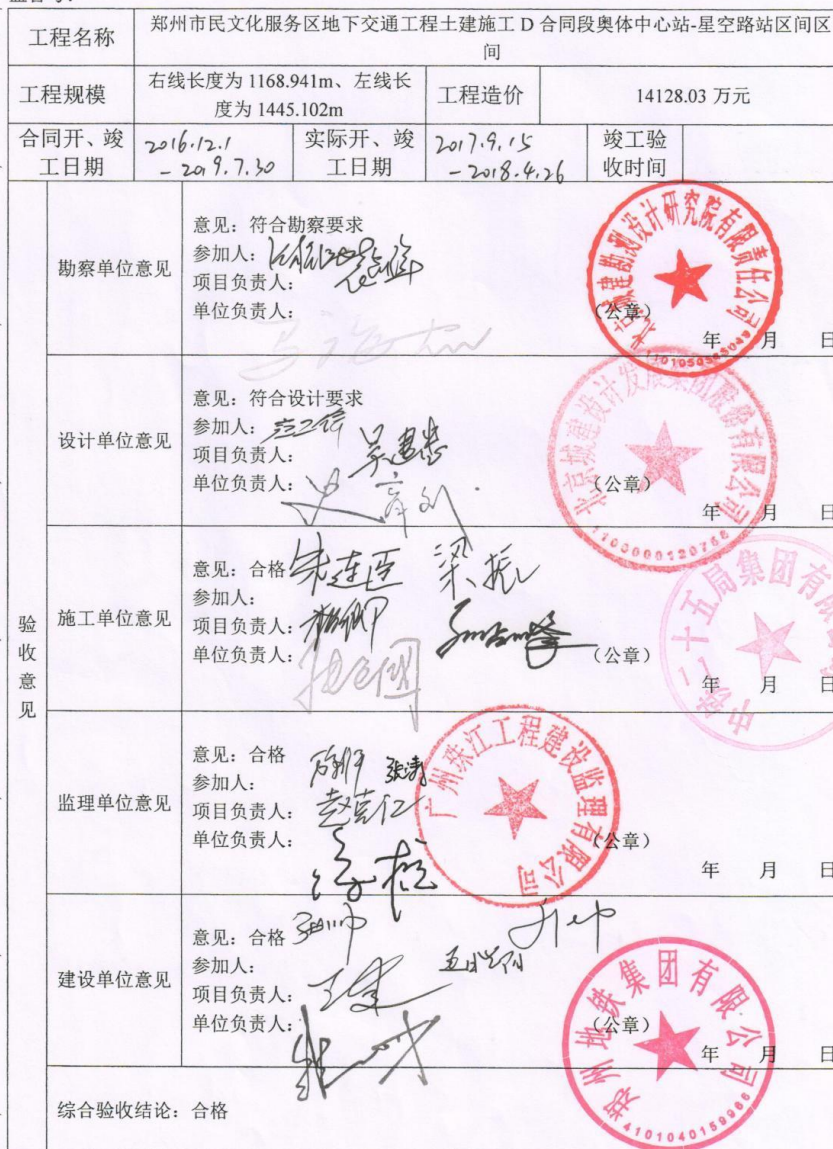 工程名称
郑州市民文化服务区地下交通工程土建施工 D 合同段奥体中心站-星空路站区间区
间
工程规模
右线长度为 1168.941m、左线长
度为 1445.102m
工程造价
14128.03 万元
合同开、竣
工日期
2016.12.1
- 2019.7.30
实际开、竣
工日期
2017.9.15
- 2018.4.26
竣工验
收时间
验收意见
勘察单位意见
意见：符合勘察要求
参加人：
项目负责人：
单位负责人：
（公章）
年 月 日
北京城建勘测设计研究院有限责任公司
设计单位意见
意见：符合设计要求
参加人：
项目负责人：
吴建忠
单位负责人：
（公章）
年 月 日
北京城建设计发展集团股份有限公司
施工单位意见
意见：合格
朱连臣
梁振
参加人：
项目负责人：
单位负责人：
（公章）
年 月 日
中铁二十五局集团有
监理单位意见
意见：合格
张涛
参加人：
项目负责人：
赵克仁
单位负责人：
（公章）
年 月 日
广州珠江工程建设监理有限公司
建设单位意见
意见：合格
参加人：
项目负责人：
单位负责人：
（公章）
年 月 日
郑州地铁集团有限公司
4101040159966
综合验收结论：合格